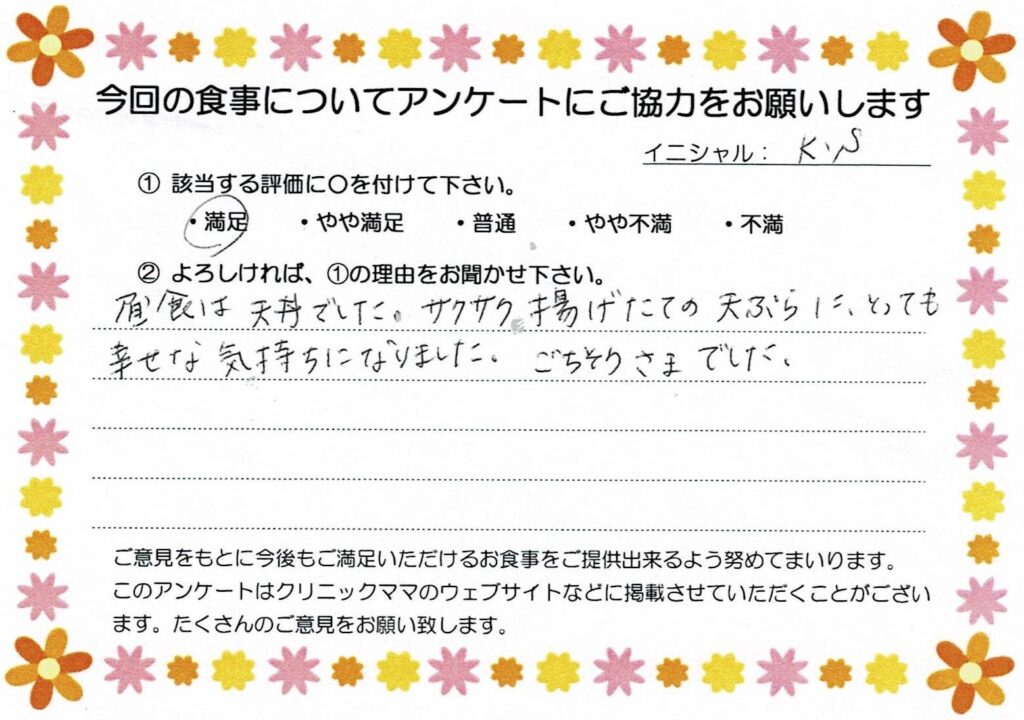 今回の食事についてアンケートにご協力をお願いします
イニシャル： K.N
① 該当する評価に〇を付けて下さい。
・満足 ・やや満足 ・普通 ・やや不満 ・不満
② よろしければ、①の理由をお聞かせ下さい。
昼食は 天丼でした。サクサク 揚げたての 天ぷらに、とっても
幸せな 気持ちになりました。 ごちそうさまでした。
ご意見をもとに今後もご満足いただけるお食事をご提供出来るよう努めてまいります。
このアンケートはクリニックママのウェブサイトなどに掲載させていただくことがござい
ます。たくさんのご意見をお願い致します。